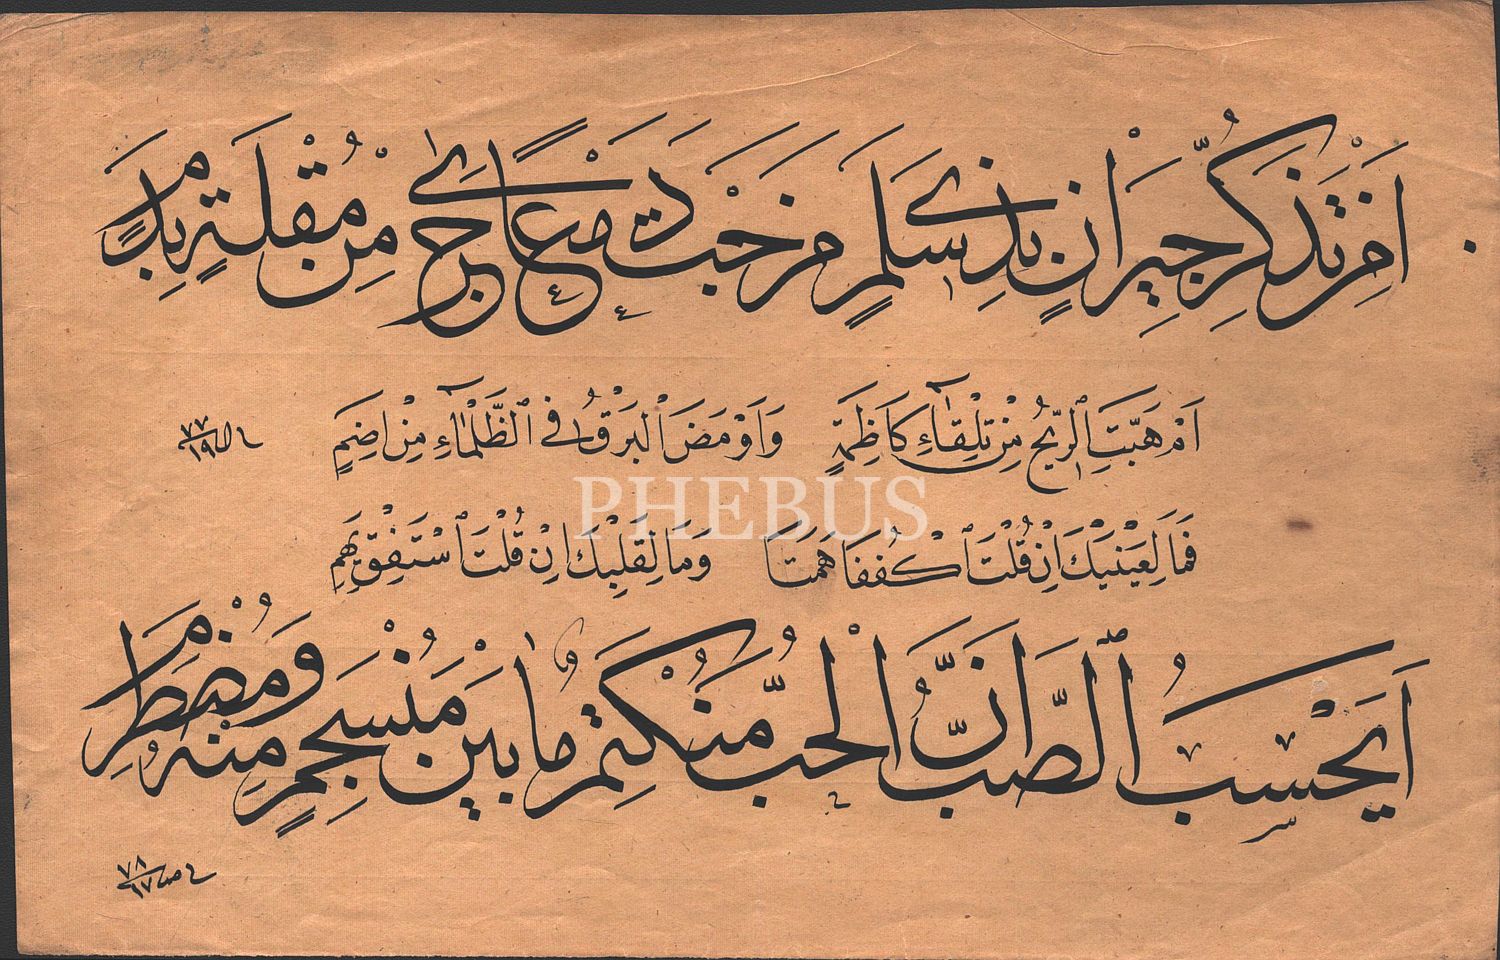 اَمِنْ تَذَكُّرِ جِيْرَانٍ بِذِي سَلَمٍ مَزَجْتَ دَمْعًا جَرٰى مِنْ مُقْلَةٍ بِدَمٍ
اَمْ هَبَّتِ الرِّيْحُ مِنْ تِلْقَاۤءِ كَاظِمَةٍ وَاَوْمَضَ الْبَرْقُ فِي الظَّلْمَاۤءِ مِنْ اِضَمِ
٧٧ ١٩
PHEBUS
فَمَا لِعَيْنَيْكَ اِنْ قُلْتَ اكْفُفَا هَمَتَا وَمَا لِقَلْبِكَ اِنْ قُلْتَ اسْتَفِقْ يَهِمِ
اَيَحْسَبُ الصَّبُّ اَنَّ الْحُبَّ مُنْكَتِمٌ مَا بَيْنَ مُنْسَجِمٍ مِنْهُ وَمُضْطَرِمِ
٧٨ ١٧